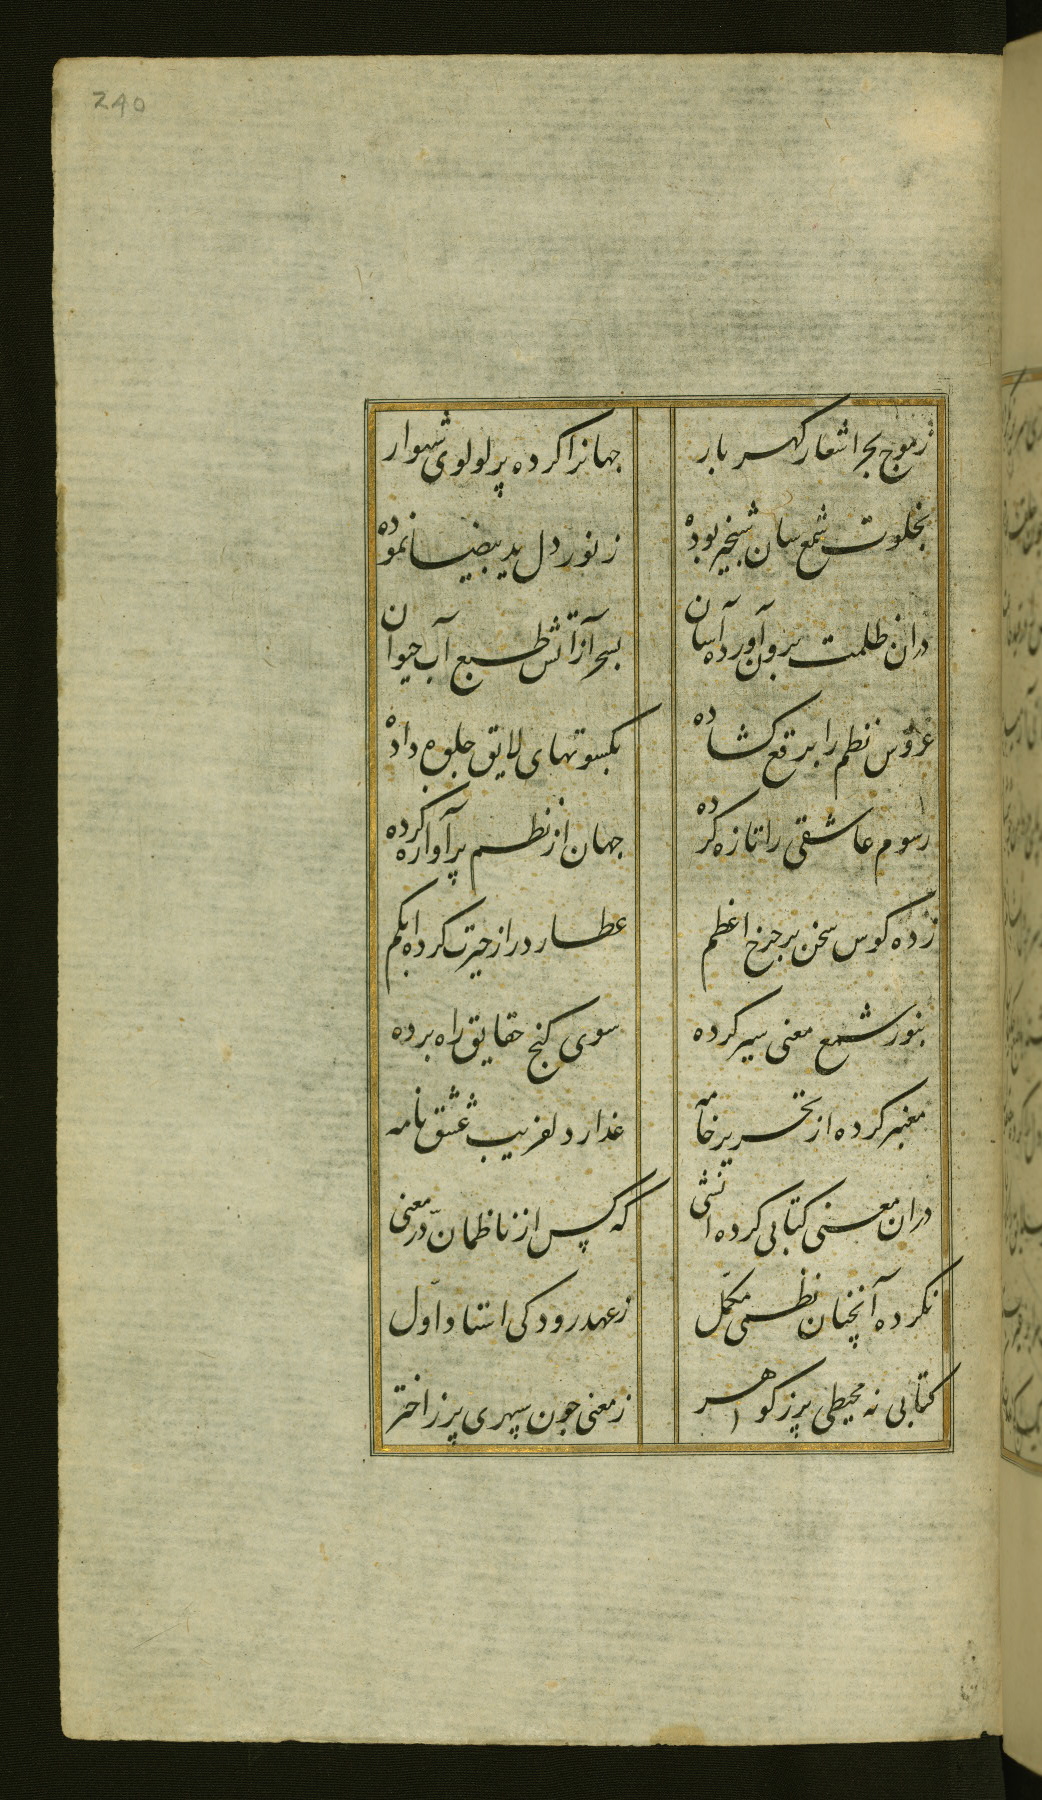 240
زموج بحر اشعار کهر بار
جهانرا کرده پر لولوی شهوار
بخلوت شمع سان شبخیز بوده
ز نور دل ید بیضا نموده
دران ظلمت برون آورده آسان
بسحر از آتش طبع آب حیوان
عروس نظم را برقع کشاده
بکسوتهای لایق جلوه داده
رسوم عاشقی را تازه کرده
جهان از نظم پر آوازه کرده
زده کوس سخن بر چرخ اعظم
عطارد را ز حیرت کرده ابکم
بنور شمع معنی سیر کرده
سوی کنج حقایق راه برده
معنبر کرده از تحریر خامه
عذار دلفریب عشق نامه
دران معنی کتابی کرده انشی
که پس از ناظمان در معنی
نکرده آنچنان نظمی مکمل
زعهد رودکی استاد اوّل
کتابی نه محیطی پر ز کوهر
ز معنی چون سپهری پر ز اختر